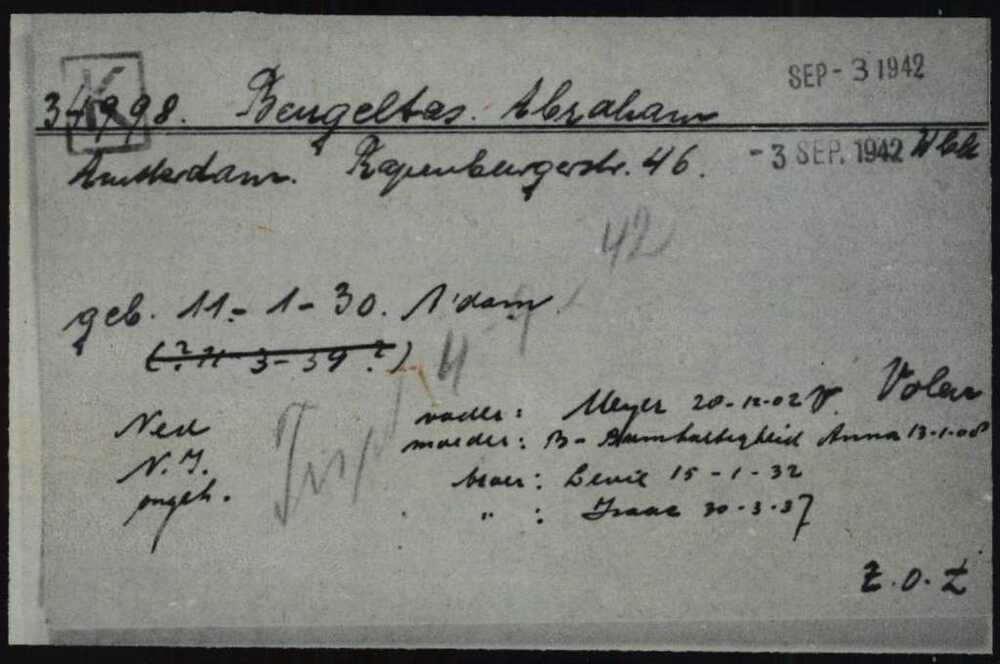 K
SEP - 3 1942
34998. Beugeltas. Abraham
Amsterdam. Rapenburgerstr. 46. - 3 SEP. 1942
42
geb. 11 - 1 - 30. A'dam
(? 11 3 - 39 ?)
Ned vader: Meyer 20-12-02
N.I. moeder: B- Barmhartigheid Anna 13-1-08
ongeh. broer: Levie 15 - 1 - 32
" : Isaac 30 - 3 - 37
Z.O.Z